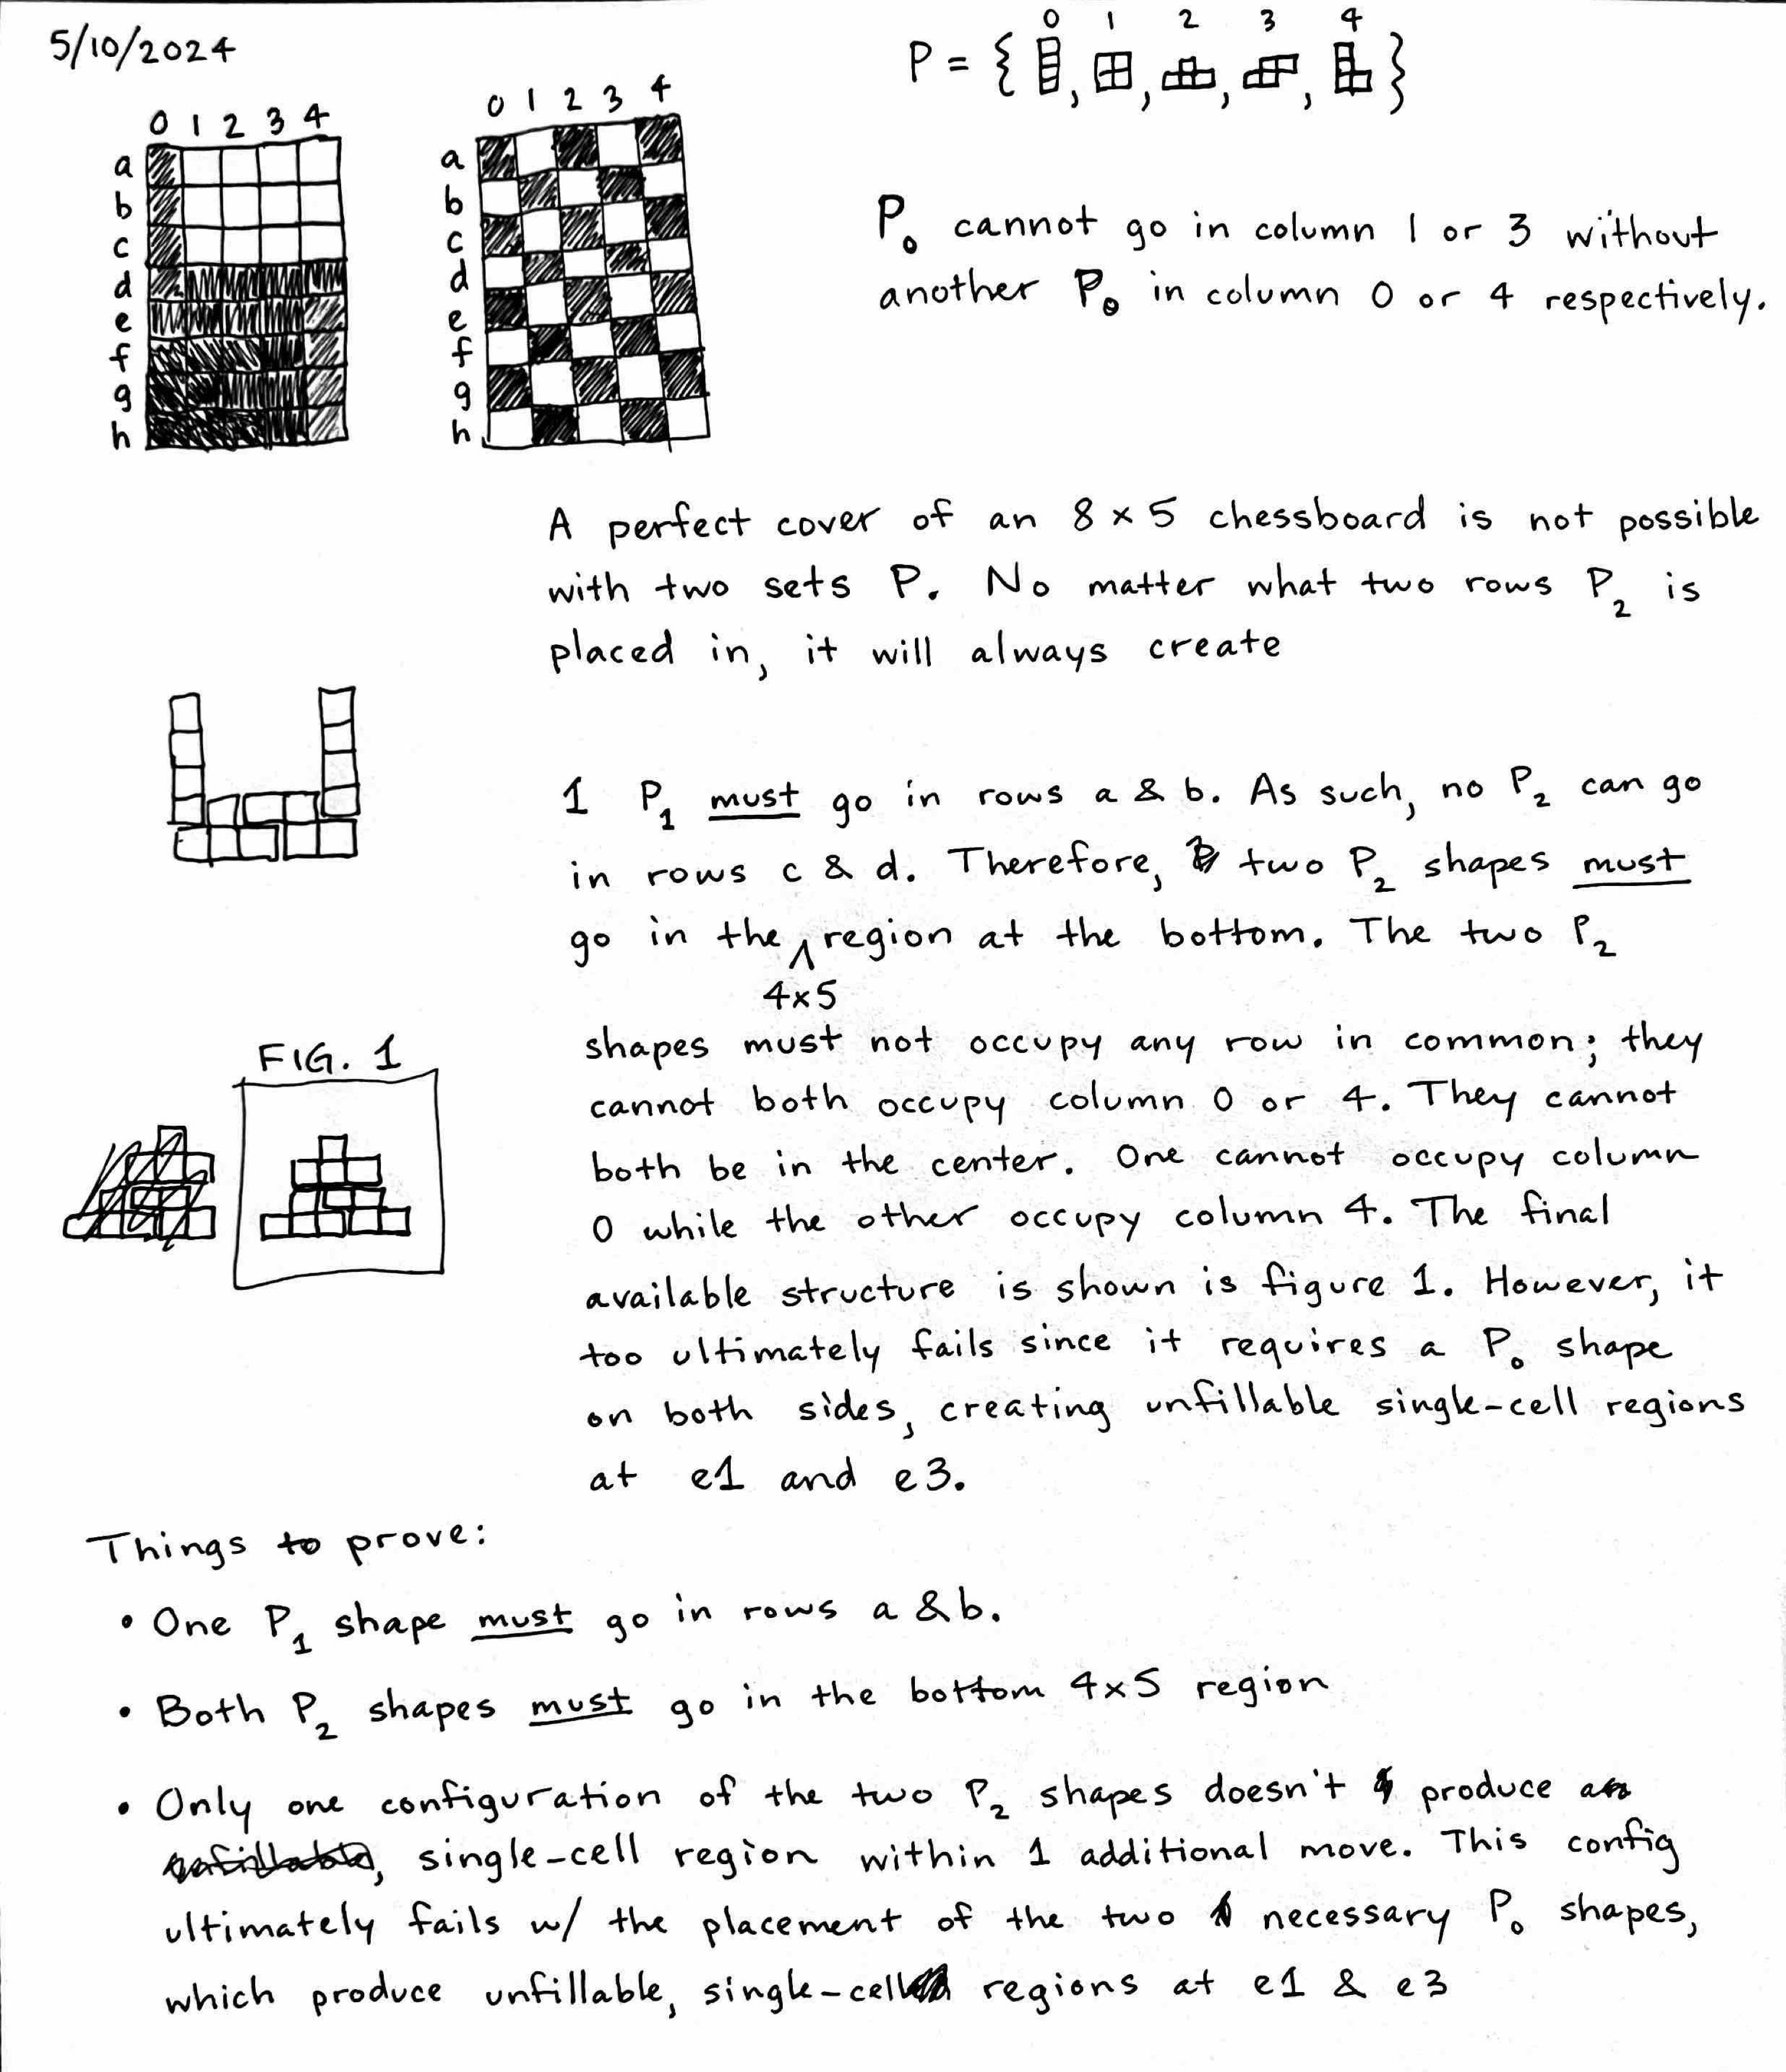 5/10/2024
0 1 2 3 4
P = { , , , , }
0 1 2 3 4
a
b
c
d
e
f
g
h
0 1 2 3 4
a
b
c
d
e
f
g
h
P0 cannot go in column 1 or 3 without
another P0 in column 0 or 4 respectively.
A perfect cover of an 8 x 5 chessboard is not possible
with two sets P. No matter what two rows P2 is
placed in, it will always create
1 P1 must go in rows a & b. As such, no P2 can go
in rows c & d. Therefore, two P2 shapes must
go in the 4x5 region at the bottom. The two P2
shapes must not occupy any row in common; they
cannot both occupy column 0 or 4. They cannot
both be in the center. One cannot occupy column
0 while the other occupy column 4. The final
available structure is shown is figure 1. However, it
too ultimately fails since it requires a P0 shape
on both sides, creating unfillable single-cell regions
at e1 and e3.
FIG. 1
Things to prove:
• One P1 shape must go in rows a & b.
• Both P2 shapes must go in the bottom 4x5 region
• Only one configuration of the two P2 shapes doesn't produce an
unfillable, single-cell region within 1 additional move. This config
ultimately fails w/ the placement of the two necessary P0 shapes,
which produce unfillable, single-cell regions at e1 & e3